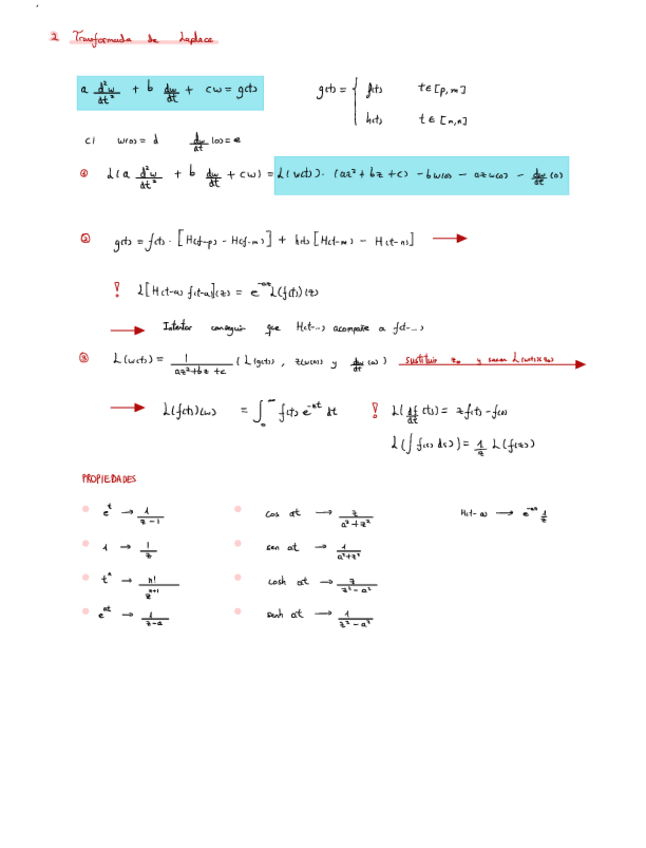 2 Transformada de Laplace
a d²w/dt² + b dw/dt + cw = g(t)    g(t) = { f(t)  t ∈ [p,m]
h(t)  t ∈ [m,n]
CI  w(0) = d  dw/dt (0) = e
① L(a d²w/dt² + b dw/dt + cw) = L(w(t)) · (az² + bz + c) - bw(0) - azw(0) - dw/dt (0)
② g(t) = f(t) · [H(t-p) - H(t-m)] + h(t) [H(t-m) - H(t-n)] →
! L[H(t-a) f(t-a)](z) = e^-az L(f(t))(z)
→ Intentar conseguir que H(t-..) acompañe a f(t-..)
③ L(w(t)) = 1/(az²+bz+c) (L(g(t)), z(w(0)) y dw/dt (0)) sustituir y sacar →
→ L(f(t))(w) = ∫₀^∞ f(t) e^-zt dt    ! L(df/dt (t)) = z f(t) - f(0)
L(∫ f(s) ds) = 1/z L(f(z))
PROPIEDADES
• e^t → 1/(z-1)    • cos at → z/(a²+z²)    H(t-a) → e^-az 1/z
• 1 → 1/z    • sen at → 1/(a²+z²)
• t^n → n!/z^(n+1)    • cosh at → z/(z²-a²)
• e^at → 1/(z-a)    • senh at → 1/(z²-a²)